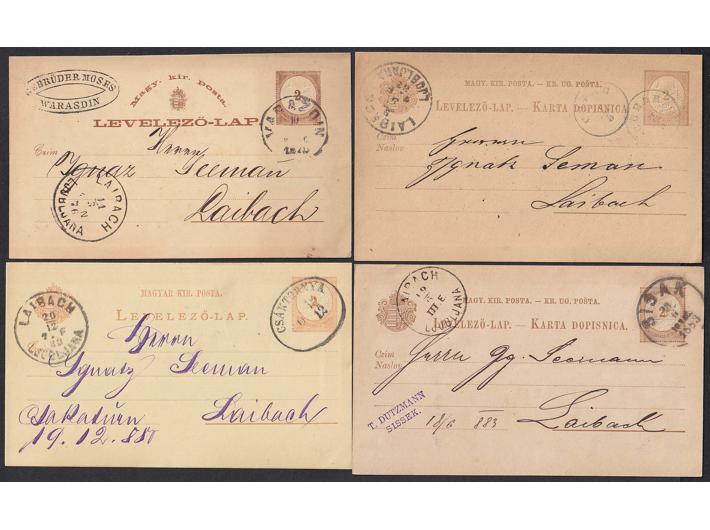 GEBRÜDER MOSES
WARASDIN
Magy. kir. posta.
2
LEVELEZŐ-LAP
VARAZDIN
Czim
Herrn
Ignaz Seeman
Laibach
LAIBACH
LJUBLJANA
MAGY. KIR. POSTA. - KR. UG. POŠTA.
LEVELEZŐ-LAP. - KARTA DOPISNICA.
LAIBACH
Czim
Naslov
Herrn
Ignak Seman
Laibach
MAGYAR KIR. POSTA.
LEVELEZŐ-LAP.
CSÁKTORNYA
12
LAIBACH
20
12
LJUBLJANA
Herrn
Ignatz Seeman
Laibach
19. 12. 880
MAGY. KIR. POSTA. - KR. UG. POŠTA.
LEVELEZŐ-LAP. - KARTA DOPISNICA.
2
LAIBACH
LJUBLJANA
SISAK
Czim
Naslov
Herrn Gg. Seemann
T. DUTZMANN
SISSEK.
18/6 883
Laibach